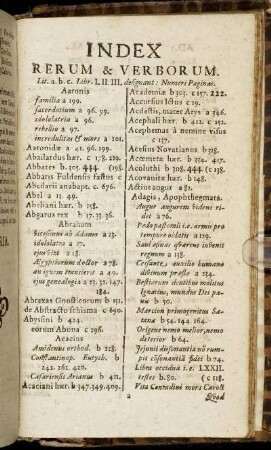 INDEX
RERUM & VERBORUM.
Lit. a. b. c. Libr. I. II III. designant: Numeri Paginas.
Aaronis
familia a 199.
sacerdotium a 96. 99.
idololatria a 96.
rebellio a 97.
incredulitas & mors a 101.
Aaronidæ a 41. 96. 199.
Abailardus hær. c 178. 219.
Abbates b 305.
Abbatis Foldensis fastus c
Abcdarii anabapt. c. 676.
Abel a 11. 49.
Abelliani hær. b 158.
Abgarus rex b 17. 33. 36.
Abraham
a 23.
idololatra a 27.
ejus vita a 28.
Ægyptiorum doctor a 78.
an ignem transierit a 49.
ejus genealogia a 23. 31. 147.
184.
Abraxas Gnosticorum b 151.
de Abstracto schisma c 690.
Abyssini b 424.
eorum Abuna c 296.
Acacius
Amidenus orthod. b 228.
Constantinop. Eutych. b
242. 261. 420.
Cæsariensis Arianus b 421.
Acaciani hær. b 347. 349. 409.
Academiæ b 303. c 157. 222.
Accursius Ictus c 29.
Acdestis, mater Atys a 346.
Acephali hær. b 422. c 152.
Acephemas à nemine visus
c 137.
Acesius Novatianus b 318.
Acœmetæ hær. b 234. 417.
Acoluthi b 308.
Acovanitæ hær. b 148.
Actiosaugur a 81.
Adagia, Apophthegmata.
Augur augurem videns ri-
det a 76.
Pedopastomli i.e. extra pro
tempore nidato a 129.
Saul asinas quærens invenit
regnum a 118.
Cessante auxilio humano
divinum præsto a 134.
Bestiarum dentibus molitus
Ignatius, mundus Dei pa-
nis b 50.
Marcion primogenitus Sa-
tanæ b 54. 144. 264.
Origene nemo melior, nemo
deterior b 64.
Jejunii dissonantia nō rum-
pit cōsonantiā fidei b 74.
Libro occidua i.e. LXXII.
testes b 80. (c 118.
Vita Conradini mors Caroli
a
Quod